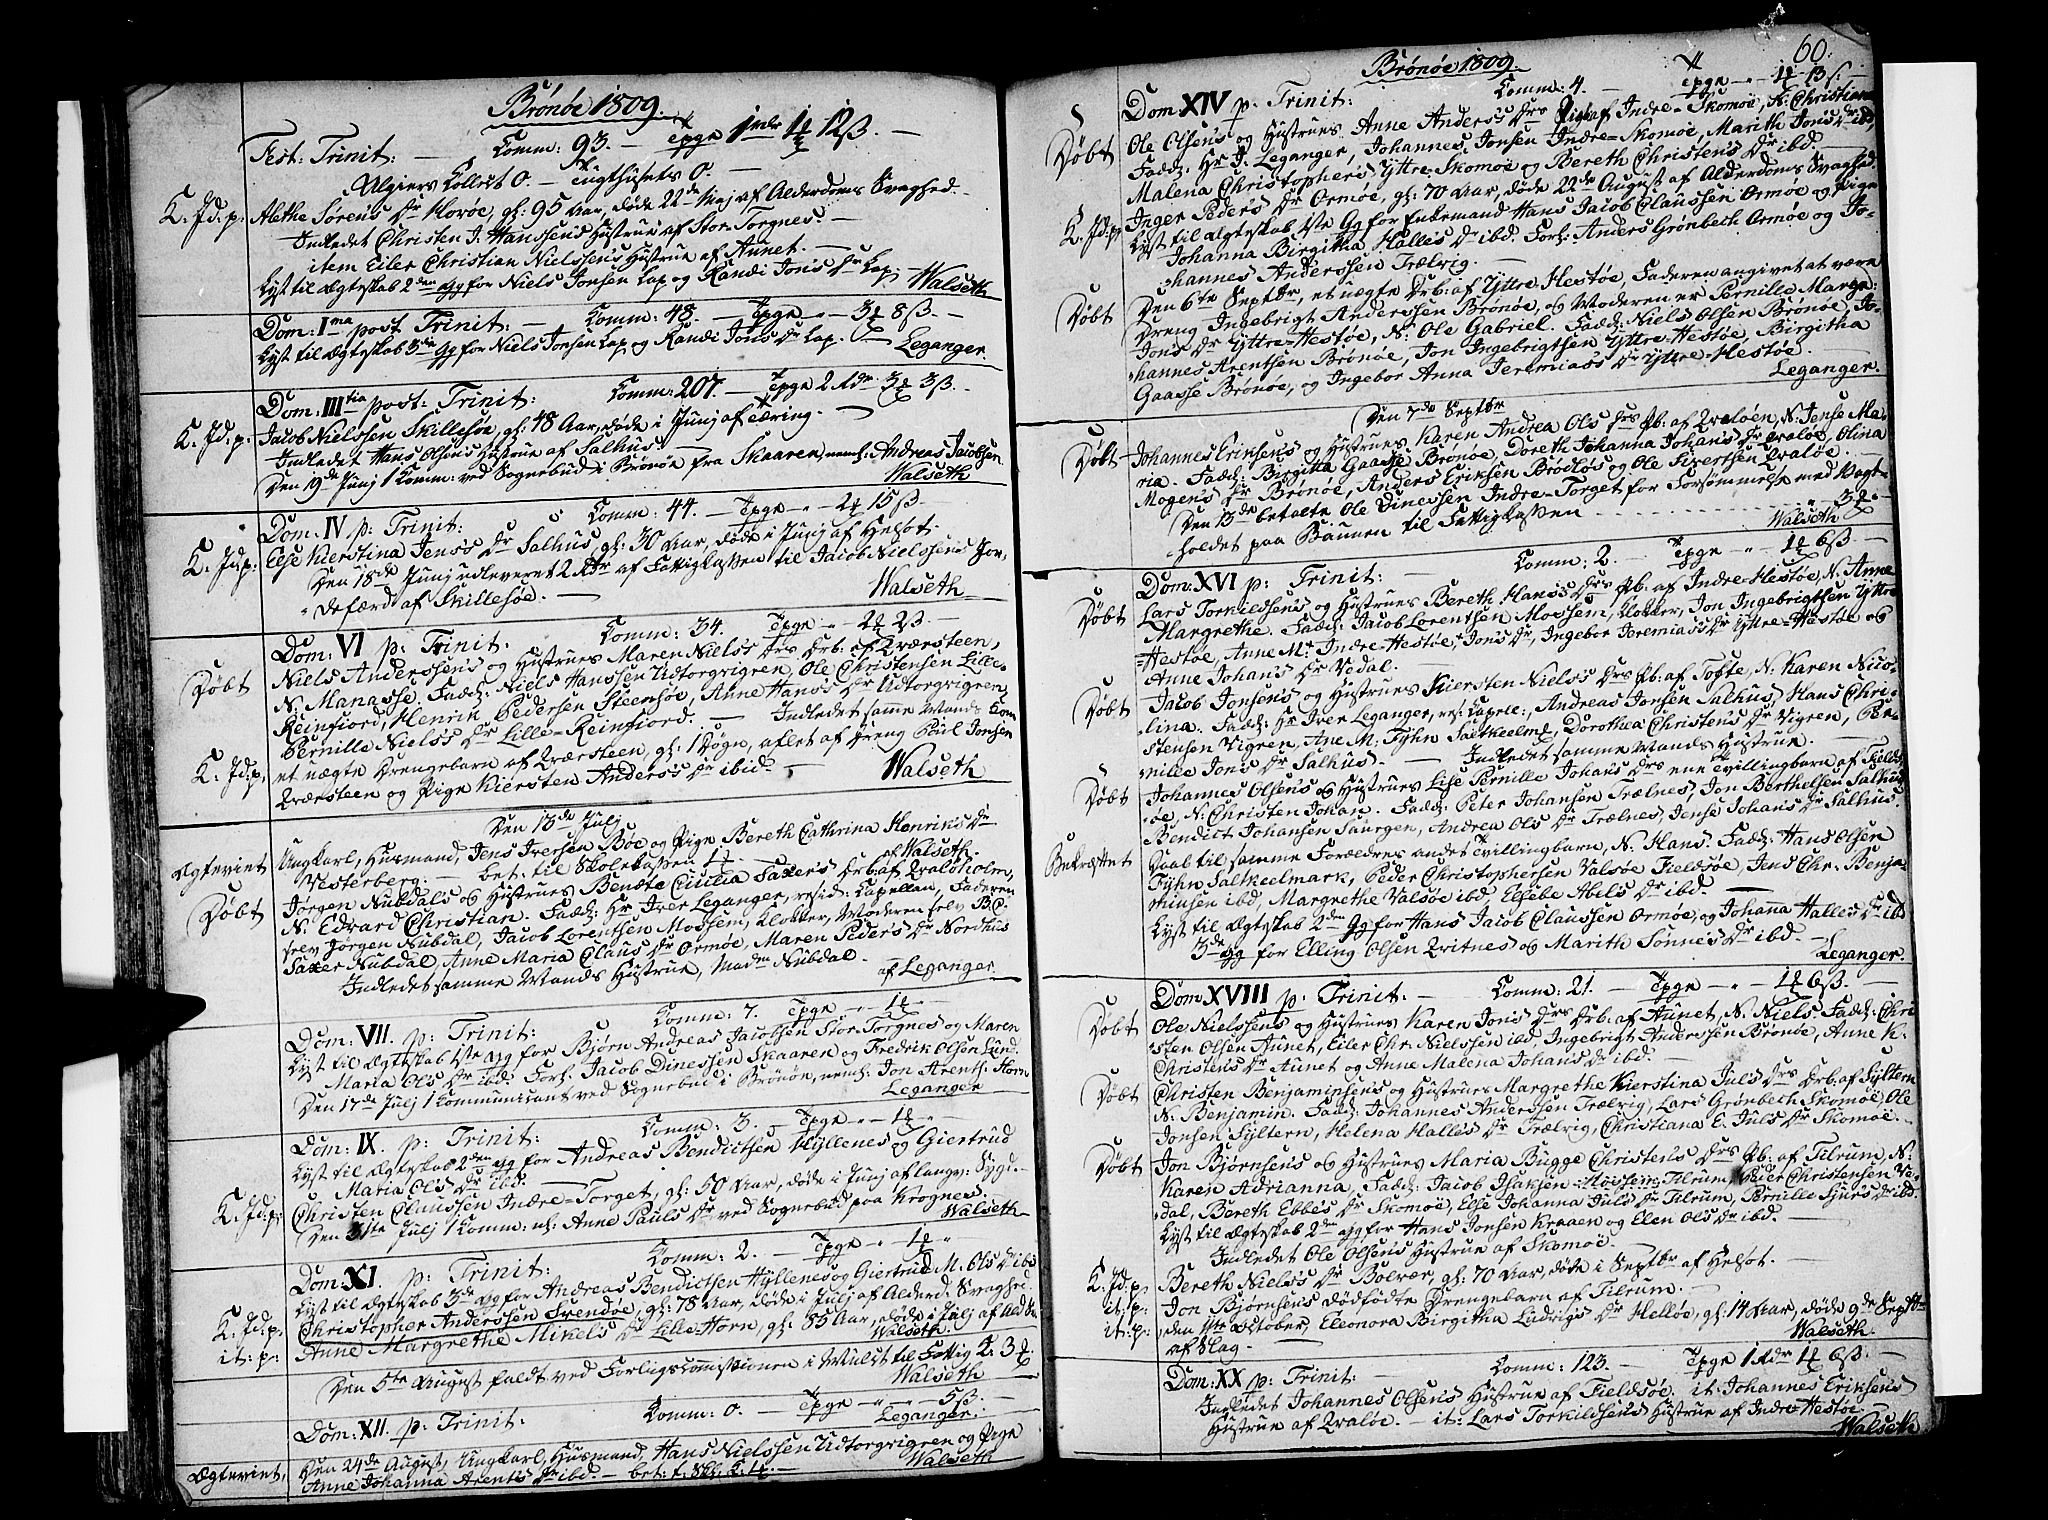 Brønøe 1809.
Fest: Trinit: — Comm: 93. — Tpge 1 rdr 1 12ß. —
Algiers Collect 0. — Tugthusets 0. —
K. Jd: p: Alethe Sørens Dr Horøe, gl: 95 Aar, døde 22de Maj af Alderdoms Svaghed. —
Indledet Christen J. Hanssens Hustrue af Stor-Torgnes. —
item Eiler Christian Nielssens Hustrue af Aunet. —
Lyst til Ægteskab 2den Gg for Niels Jonsen Lap og Randi Jons Dr Lap. — Walseth
Dom: Ima post Trinit: — Comm: 48. — Tpge " — 3 8ß. —
Lyst til Ægteskab 3de Gg for Niels Jonsen Lap og Randi Jons Dr Lap. — Leganger.
Dom: IIItia post: Trinit: Comm: 207. — Tpge 2 Rdr 3 3ß. —
K. Jd: p: Jacob Nielssen Skillesøe, gl: 48 Aar, døde i Junj af Tæring. —
Indledet Hans Olsens Hustrue af Salhus. —
Den 19de Junj 1 Comm: ved Sognebud i Brønøe fra Skaaren, neml: Andreas Jacobsen.
Walseth
Dom: IV p: Trinit: Comm: 44. — Tpge — " — 2 15ß. —
K. Jd: p: Else Kierstina Jens's Dr Salhus, gl: 30 Aar, døde i Junj af Helsot. —
Den 18de Junj udleveret 2 Rdr af Fattigkassen til Jacob Nielssens Jor-
defærd af Skillesøe. — Walseth
Dom: VI p: Trinit: Comm: 34. Tpge — " — 2 2ß. —
Døbt Niels Anderssens og Hustrues Maren Niels's Drs Drb: af Qværsteen,
N: Manasse. Fadd: Niels Hanssen Udtorgvigren, Ole Christensen Lille-
Reinfiord, Henrik Pedersen Steensøe, Anne Hans's Dr Udtorgvigren,
Pernille Niels's Dr Lille-Reinfiord. — Indledet samme Mands Kone
K: Jd: p: et uægte Drengebarn af Qværsteen, gl: 1 Døgn, aflet af Dreng Poul Jonsen
Qværsteen og Pige Kiersten Anders's Dr ibid. — Walseth
Den 13de Julj
Ægteviet Ungkarl, Husmand, Jens Iversen Bøe og Pige Bereth Cathrina Henriks Dr
Vesterberg. — bet: til Skolekassen 1 — af Walseth
Døbt Jørgen Nubdals og Hustrues Benæta Cicilia Saxers Drb: af Qvalholm,
N: Edvard Christian. Fadd: Hr Iver Leganger, resid: Capellan, Faderen
selv Jørgen Nubdal, Jacob Lorentsen Mossem, Klokker, Moderen selv B: C:
Saxer Nubdal, Anne Maria Claus Dr Ormøe, Maren Peders Dr Nordhus
Indledet samme Mands Hustrue, Madme Nubdal. — af Leganger.
Dom: VII. p: Trinit: Comm: 7. Tpge — " — 1 —
Lyst til Ægteskab 1ste Gg for Bjørn Andreas Jacobsen Stor-Torgnes og Maren
Maria Ols Dr ibd. Forl: Jacob Dinessen Skaaren og Fredrik Olsen Lund.
Den 17de Julj 1 Communicant ved Sognebud i Brønøe, neml: Jon Arents: Horn
Leganger
Dom: IX. p: Trinit: Comm: 3. Tpge — " — 1 —
Lyst til Ægteskab 2den Gg for Andreas Bendictsen Hyllenes og Giertrud
Maria Ols Dr ibd. —
K. Jd: p: Christen Claussen Indre-Torget, gl: 50 Aar, døde i Junj af langv: Sygd. —
Den 31te Julj 1 Komm: nl: Anne Pauls Dr ved Sognebud paa Krognes. Walseth
Dom: XI. p: Trinit: Comm: 2. — Tpge — " — 1 "
Lyst til Ægteskab 3de Gg for Andreas Bendictsen Hyllenes og Giertrud M. Ols Dr ibd
K. Jd: p: Christopher Anderssen Svendøe, gl: 78 Aar, døde i Julj af Alderd. Svaghed.
it: p: Anne Margrethe Mikels Dr Lille-Horn, gl: 85 Aar, døde i Julj af Ald Sv.
Walseth.
Den 5te August faldt ved Forligscomissionen i Mulct til Fattig K: 3
Walseth
Dom: XII. p: Trinit: Comm: 0. — Tpge — " — " — 5ß. —
Leganger.
Ægteviet, Den 24de August, Ungkarl, Husmand, Hans Nielssen Udtorgvigren og Pige
Anne Johanna Arents Dr ibd. — bet: t: Skl. K: 1. — Walseth
Brønøe 1809. 60.
Dom XIV p: Trinit: Comm: 4. Tpge — " — 1 13ß. —
Døbt Ole Olsens og Hustrues Anne Anders's Drs Pigb: af Indre-Skomøe, N: Christiana
Fadd: Hr I. Leganger, Johannes Jonsen Indre-Skomøe, Marith Jons Dr ibd,
Malena Christophers Yttre-Skomøe og Bereth Christens Dr ibd. —
K. Jd: p: Inger Peders Dr Ormøe, gl: 70 Aar, døde 22de August af Alderdoms Svaghed.
Lyst til Ægteskab 1ste Gg for Enkemand Hans Jacob Claussen Ormøe og Pige
Johanna Birgitha Halles Dr ibd. Forl: Anders Grønbech Ormøe og Jo-
hannes Anderssen Trælvig. —
Døbt Den 6te Septbr, et uægte Drb: af Yttre-Hestøe, Faderen angivet at være
Dreng Ingebrigt Anderssen Brønøe, og Moderen er Pernille Marya
Jons Dr Yttre-Hestøe, N: Ole Gabriel. Fadd: Niels Olsen Brønøe, Jo-
hannes Arentsen Brønøe, Jon Ingebrigtsen Yttre-Hestøe, Birgitha
Gaasse Brønøe, og Ingebor Anna Jeremias's Dr Yttre-Hestøe.
Leganger.
Den 7de Septbr
Døbt Johannes Eriksens og Hustrues Karen Andrea Ols Drs Pb: af Qvaløen, N: Jense Ma-
ria. Fadd: Birgitta Gaasse Brønøe, Doreth Johanna Johans Dr Qvaløe, Olina
Mogens Dr Brønøe, Anders Eriksen Brødløs og Ole Sivertsen Qvaløe. —
Den 13de betalte Ole Dinessen Indre-Torget for Forsømmelse med Vagt-
holdet paa Baunen til Fattigkassen - - - - - - - - 3. —
Walseth
Dom: XVI p: Trinit: — Comm: 2. Tpge — " — 1 6ß —
Døbt Lars Torkildsens og Hustrues Bereth Hans's Drs Pb: af Indre-Hestøe, N: Anne
Margrethe. Fadd: Jacob Lorentsen Mossem, Klokker, Jon Ingebrigtsen Yttre-
Hestøe, Anne M: Indre-Hestøe, Jons Dr, Ingebor Jeremias's Dr Yttre-Hestøe og
Anne Johans Dr Vedal. —
Døbt Jacob Jonsens og Hustrues Kiersten Niels's Drs Pb: af Tofte, N: Karen Nico-
lina. Fadd: Hr Iver Leganger, res: Capele:, Andreas Jonsen Salhus, Hans Chri-
stensen Vigren, Ane M. Fyhn Saltkeelm., Dorothea Christens Dr Vigren, Per-
nille Jons Dr Salhus. — Indledet samme Mands Hustrue. —
Døbt Johannes Olsens og Hustrues Lise Pernille Johans Drs ene Tvillingbarn af Fields-
øe, N: Christen Johan. Fadd: Peter Johansen Trælnes, Jon Berthelsen Salhus
Bendict Johansen Saurgen, Andrea Ols Dr Trælnes, Jense Johans Dr Salhus.
Bekræftet Daab til samme Forældres andet Tvillingbarn, N: Hans. Fadd: Hans Olsen
Fyhn Saltkeelmark, Peder Christophersen Valsøe Fieldsøe, Jens Chr. Benja-
minsen ibd, Margrethe Valsøe ibd, Elsebe Abels Dr ibd. —
Lyst til Ægteskab 2den Gg for Hans Jacob Claussen Ormøe, og Johanna Halles Dr ibd
3de Gg for Elling Olsen Qvitnes og Marith Sønnes Dr ibd. —
Leganger.
Dom: XVIII p: Trinit: — Comm: 21. — Tpge — " — 1 6ß. —
Døbt Ole Nielssens og Hustrues Karen Jons Drs Drb: af Aunet, N: Niels Fadd: Chri-
sten Olsen Aunet, Eiler Chr. Nielssen ibd, Ingebrigt Anderssen Brønøe, Anne K.
Christens Dr Aunet og Anne Malena Johans Dr ibd. —
Døbt Christen Benjaminsens og Hustrues Margrethe Kierstina Juls Drs Drb: af Syltern
N: Benjamin. Fadd: Johannes Anderssen Trælvig, Lars Grønbech Skomøe, Ole
Jonsen Syltern, Helena Halles Dr Trælvig, Christiana E. Juls Dr Skomøe. —
Døbt Jon Bjørnsens og Hustrues Maria Bugge Christens Drs Pb: af Tilrum, N:
Karen Adrianna, Fadd: Jacob Isaksen Tilrum, Peder Christensen Ve-
dal, Bereth Ebbes Dr Skomøe, Else Johanna Juls Dr Tilrum, Pernille Sjurs Dr ibd.
Lyst til Ægteskab 2den Gg for Hans Jonsen Kraaen og Elen Ols Dr ibd. —
Indledet Ole Olsens Hustrue af Skomøe. —
K: Jd: p: Bereth Niels's Dr Bolvær, gl: 70 Aar, døde i Septbr af Helsot. —
it: p: Jon Bjørnsens dødfødte Drengebarn af Tilrum. —
it: p: den 1ste October, Eleonora Birgitha Ludvigs Dr Helløe, gl: 14 Aar, døde 9de Septbr
af Slag. — Walseth.
Dom: XX p: Trinit: — Comm: 123. — Tpge 1 Rdr 1 6ß. —
Indledet Johannes Olsens Hustrue af Fieldsøe. it: Johannes Eriksens
Hustrue af Qvaløe. — it: Lars Torkildsens Hustrue af Indre-Hestøe.
Walseth